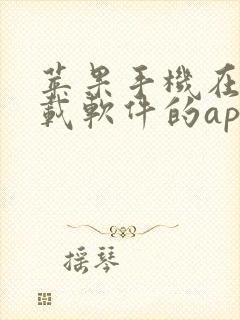 苹果手機在
載軟件的ap
摇琴